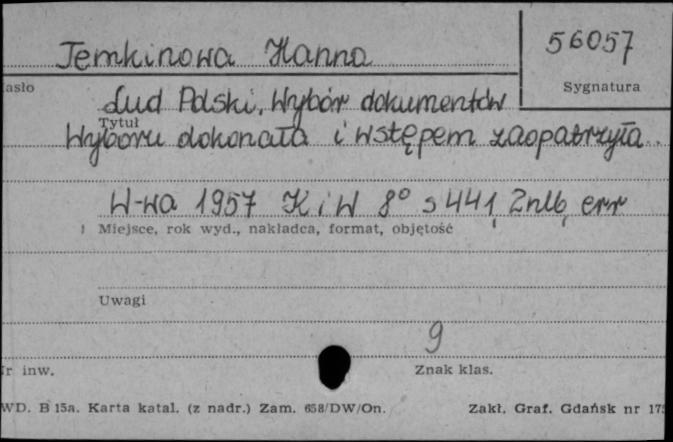 Temkinowa Hanna
56057
asło
Sygnatura
Lud Polski. Wybór dokumentów
Tytuł
Wyboru dokonała i wstępem zaopatrzyła.
W-wa 1957 KiW 8° s 441, 2nlb, err
Miejsce, rok wyd., nakładca, format, objętość
Uwagi
9
r inw.
Znak klas.
WD. B 15a. Karta katal. (z nadr.) Zam. 658/DW/On.
Zakł. Graf. Gdańsk nr 17